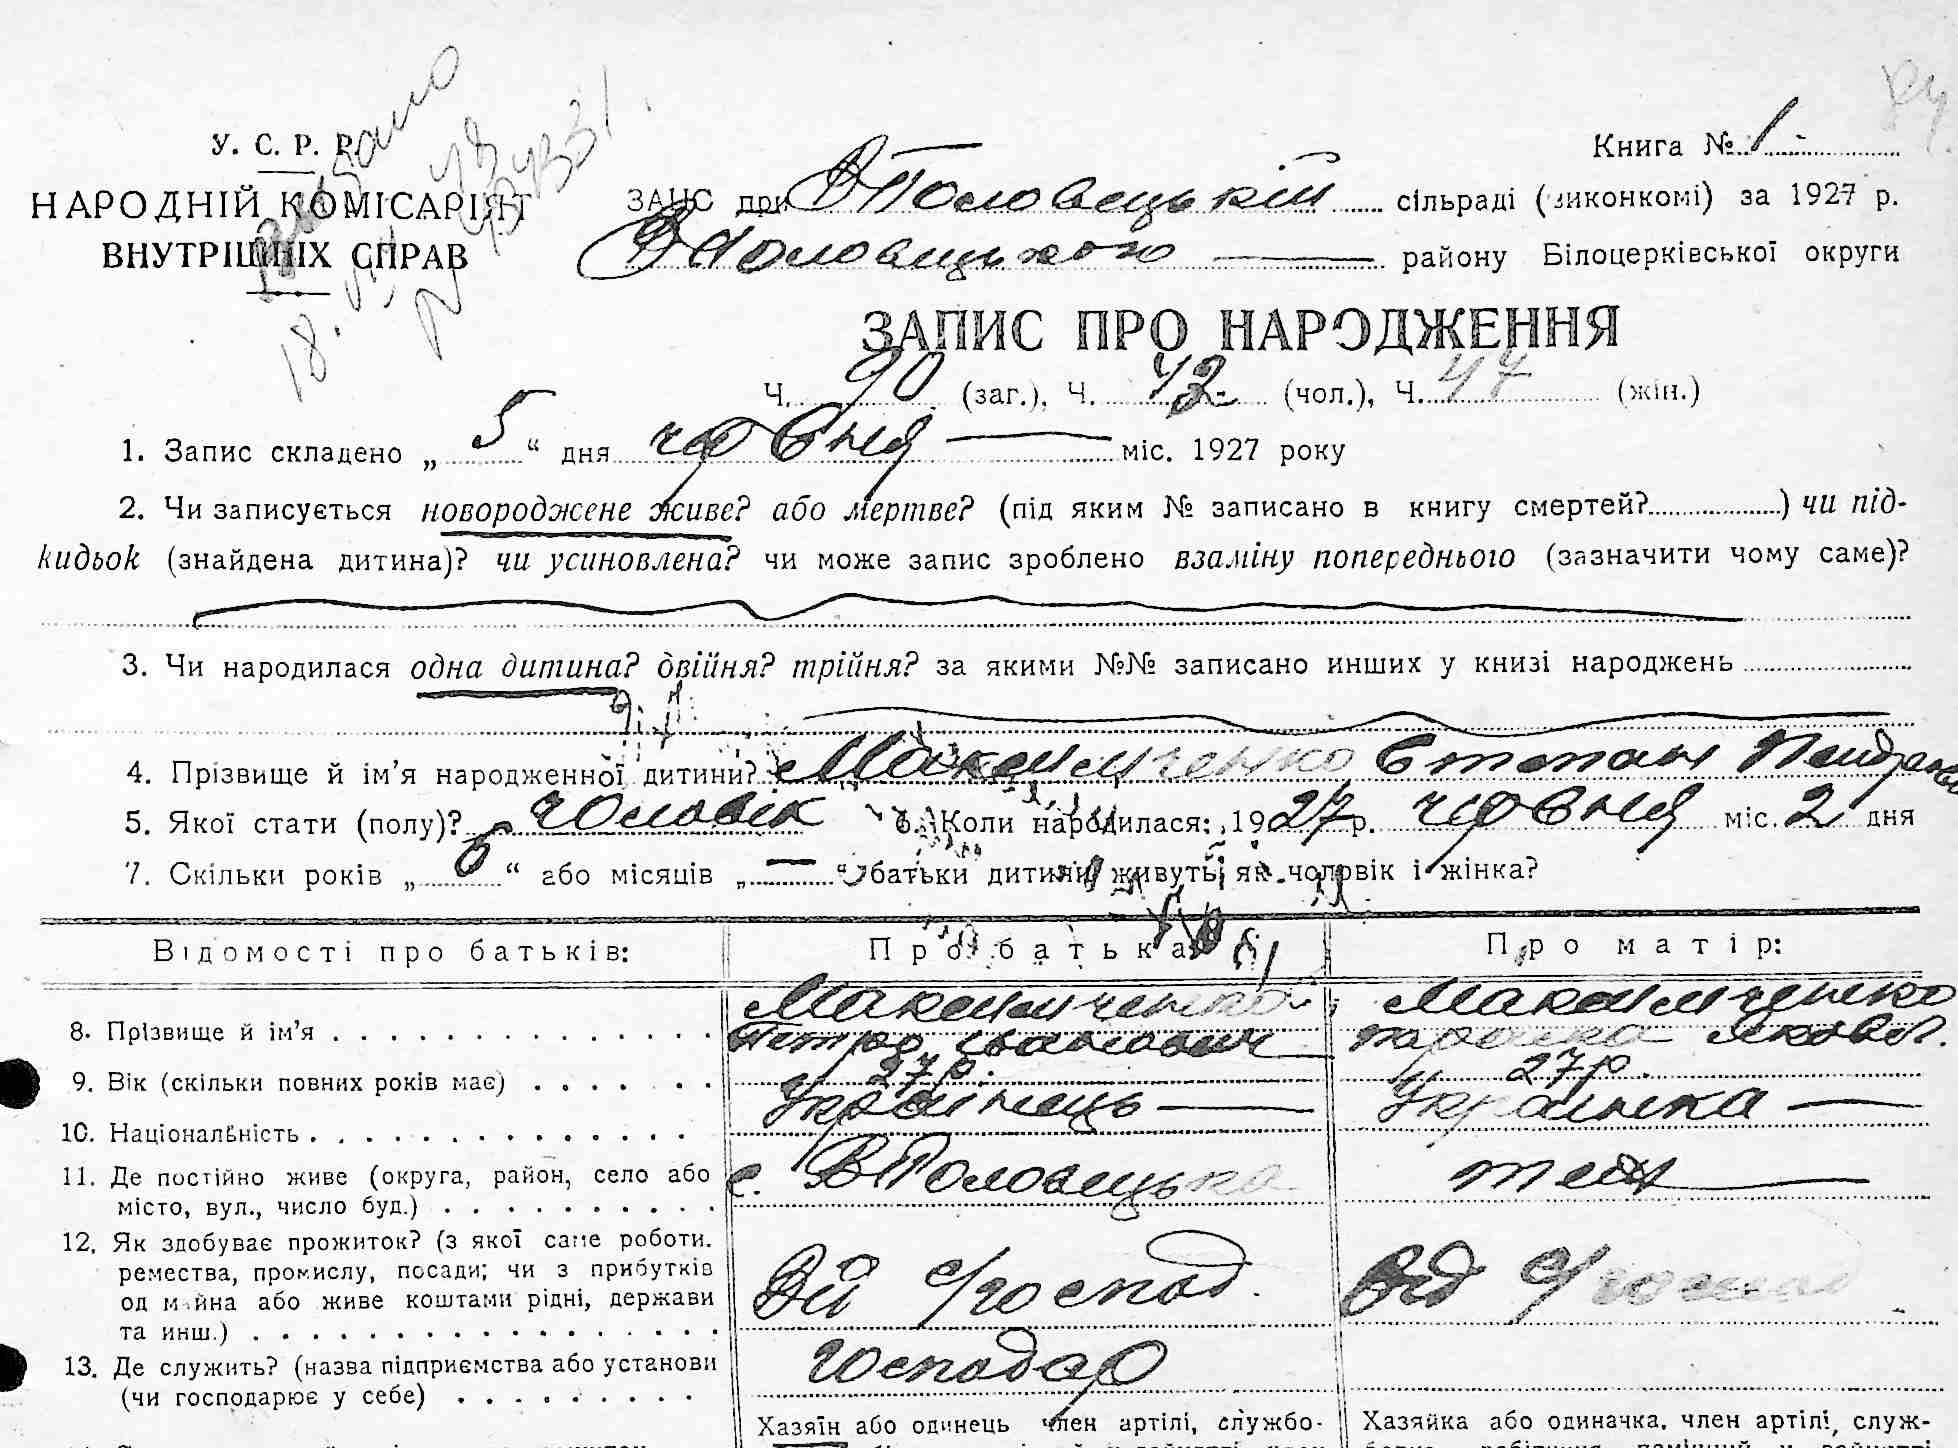 84
видано
У. С. Р. Р.
18.
Книга № 1
НАРОДНІЙ КОМІСАРІЯТ
ВНУТРІШНІХ СПРАВ
ЗАЦС при ВПоловецькій сільраді (виконкомі) за 1927 р.
ВПоловецького району Білоцерківської округи
ЗАПИС ПРО НАРОДЖЕННЯ
Ч. 90 (заг.), Ч. 43 (чол.), Ч. 47 (жін.)
1. Запис складено „ 5 “ дня червня міс. 1927 року
2. Чи записується новороджене живе? або мертве? (під яким № записано в книгу смертей?) чи під-
кидьок (знайдена дитина)? чи усиновлена? чи може запис зроблено взаміну попереднього (зазначити чому саме)?
3. Чи народилася одна дитина? двійня? трійня? за якими №№ записано инших у книзі народжень
4. Прізвище й ім’я народженної дитини? Максимченко Степан Петрович
5. Якої стати (полу)? чоловік 6. Коли народилася: 1927 р. червня міс. 2 дня
7. Скільки років „ 6 “ або місяців „ — “ батьки дитини живуть як чоловік і жінка?
Відомості про батьків: Про батька: Про матір:
Максимченко Максимченко
8. Прізвище й ім’я Петро Іванович Якові.
9. Вік (скільки повних років має) 27 р. 27 р.
10. Національність Українець Українка
11. Де постійно живе (округа, район, село або
місто, вул., число буд.) с. ВПоловецька теж
12. Як здобуває прожиток? (з якої саме роботи.
ремества, промислу, посади; чи з прибутків
од майна або живе коштами рідні, держави
та инш.) Від с/господ. Від с/господ
13. Де служить? (назва підприємства або установи
(чи господарює у себе) господар
Хазяїн або одинець член артілі, службо- Хазяйка або одиначка, член артілі, служ-